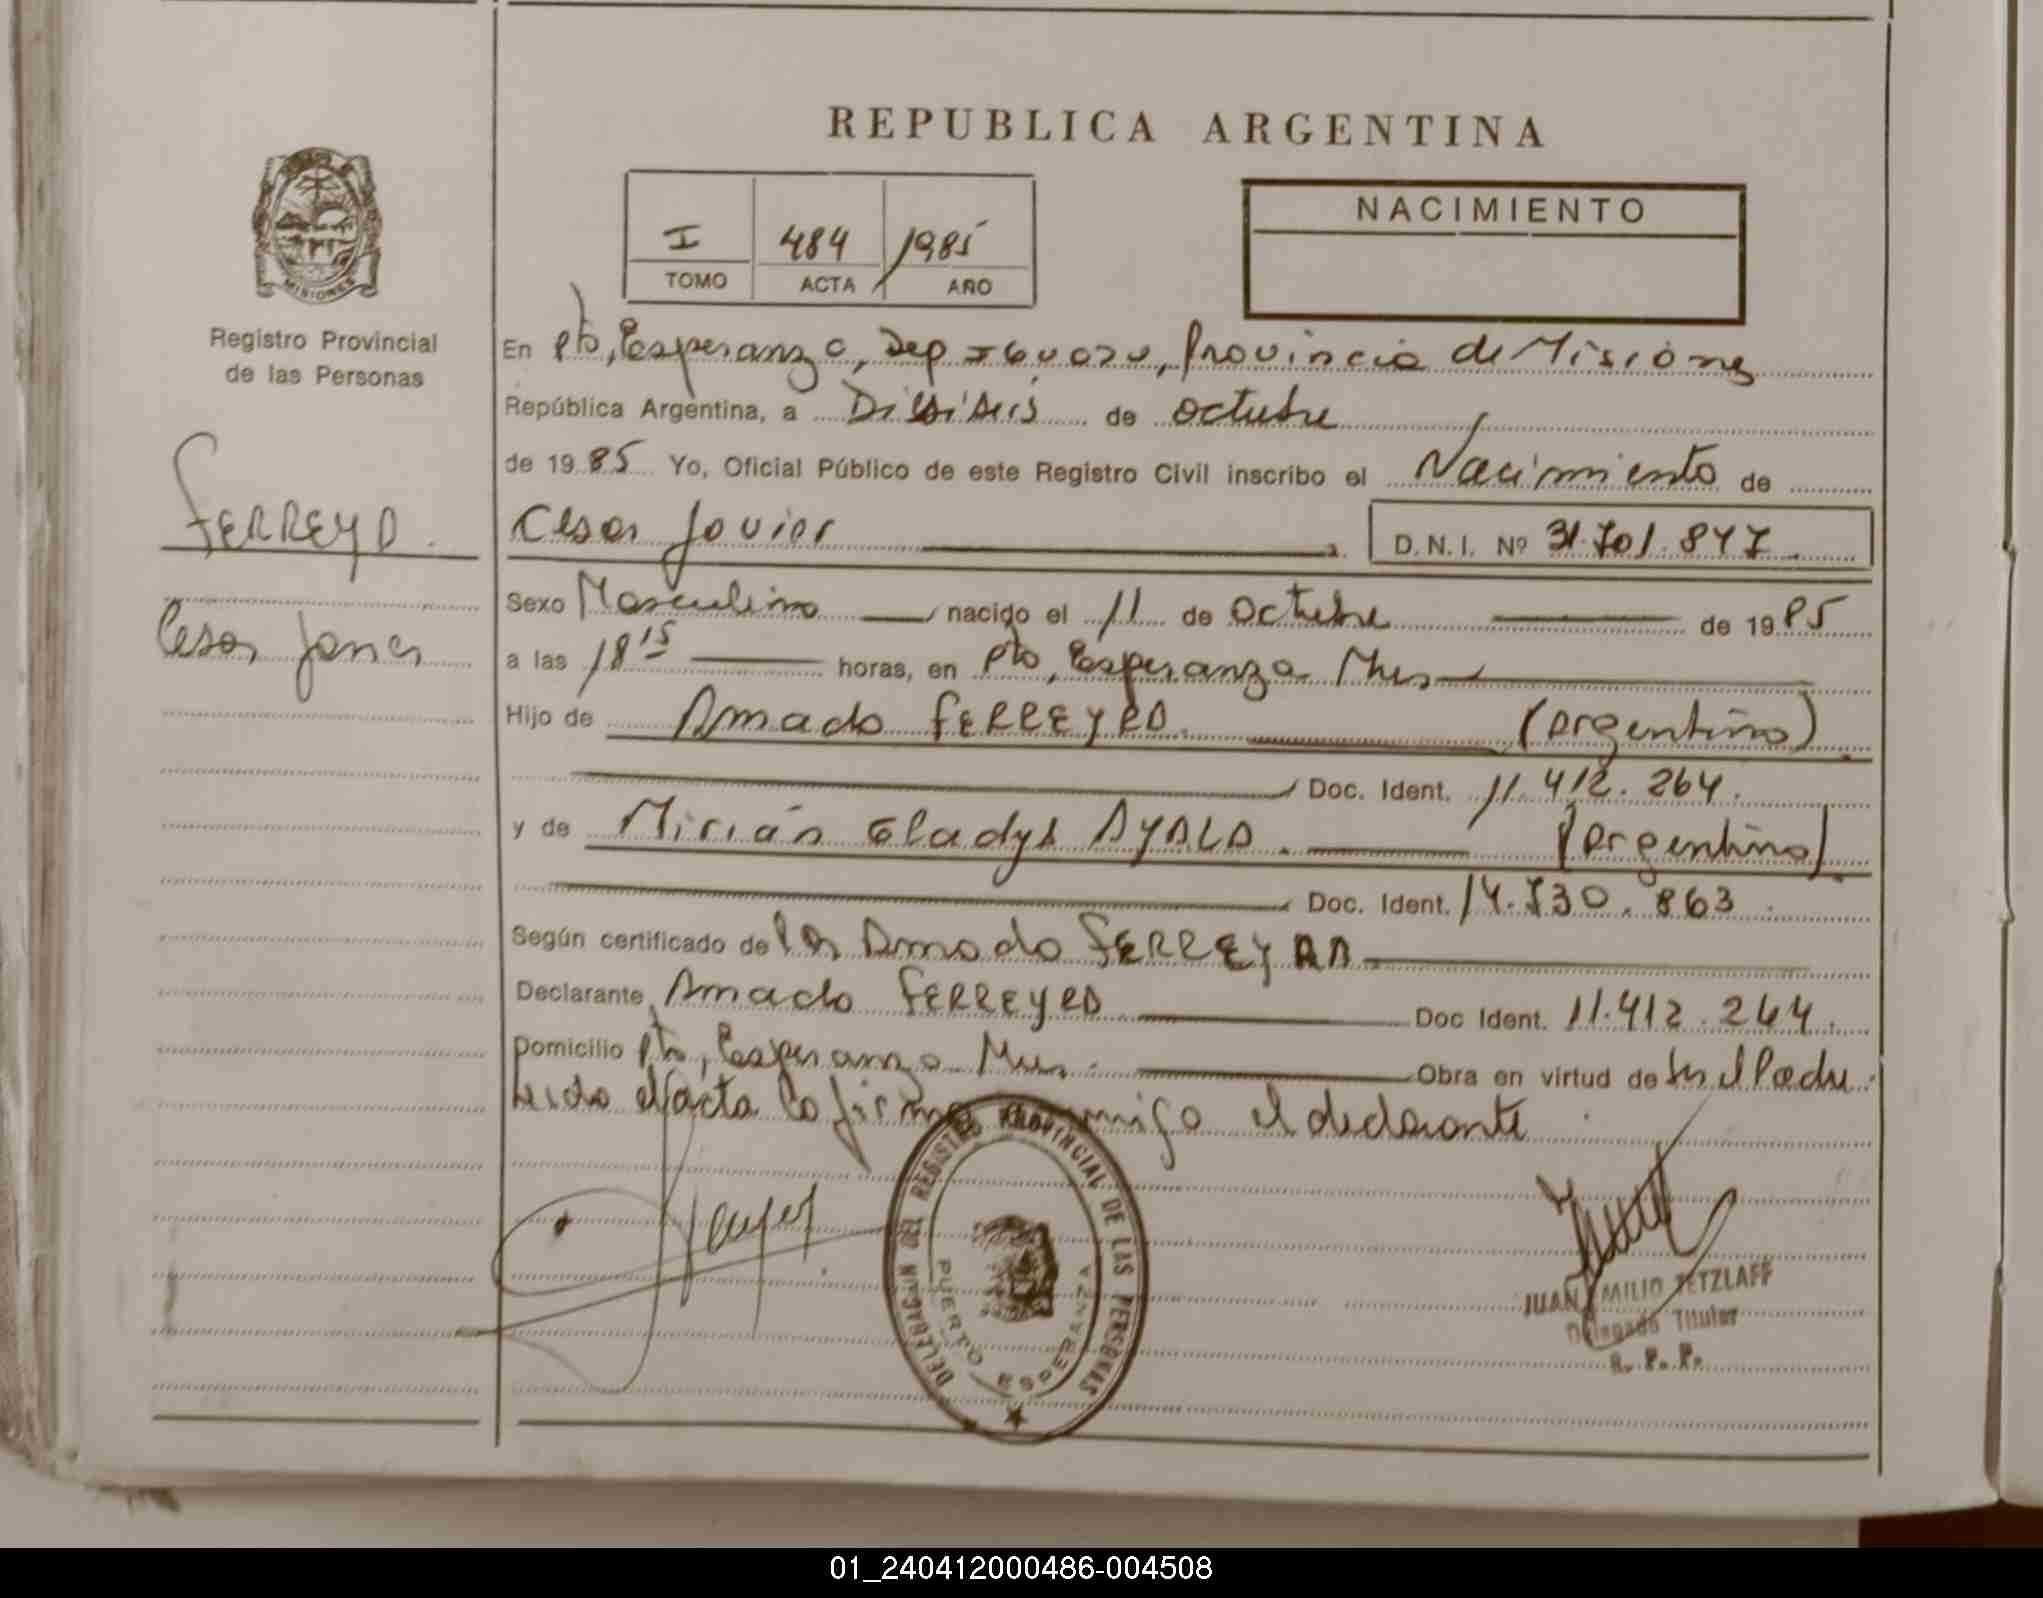 REPUBLICA ARGENTINA
I 484 1985
TOMO ACTA AÑO
NACIMIENTO
MISIONES
Registro Provincial
de las Personas
FERREYRA
Cesar Javier
En Pto, Esperanza, Dep Iguazu, Provincia de Misiones
República Argentina, a Dieciseis de octubre
de 1985 Yo, Oficial Público de este Registro Civil inscribo el Nacimiento de
Cesar Javier D.N.I. Nº 31.701.847
Sexo Masculino nacido el 11 de Octubre de 1985
a las 18 15 horas, en Pto, Esperanza Mnes
Hijo de Amado FERREYRA (argentino)
Doc. Ident. 11.412.264.
y de Mirian Gladys AYALA. (argentina)
Doc. Ident. 14.730.863
Según certificado de Amado FERREYRA
Declarante Amado FERREYRA Doc Ident. 11.412.264.
Domicilio Pto, Esperanza Mnes. Obra en virtud de ser el Padre.
Leida el acta la firma conmigo el declarante
DELEGACION DEL REGISTRO PROVINCIAL DE LAS PERSONAS
PUERTO ESPERANZA
JUAN EMILIO TETZLAFF
Delegado Titular
R. P. P.
01_240412000486-004508